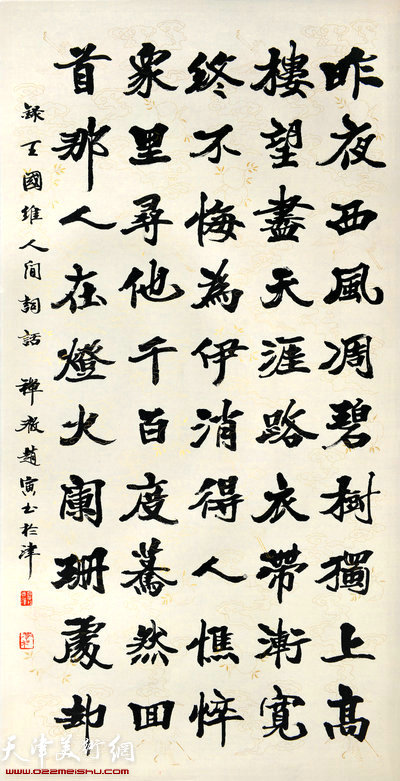 昨夜西風凋碧樹獨上高
樓望盡天涯路衣帶漸寬
終不悔為伊消得人憔悴
衆里尋他千百度驀然回
首那人在燈火闌珊處却
録王國維人間詞話 禪 趙寅书於津
天津美術網
www.022meishu.com